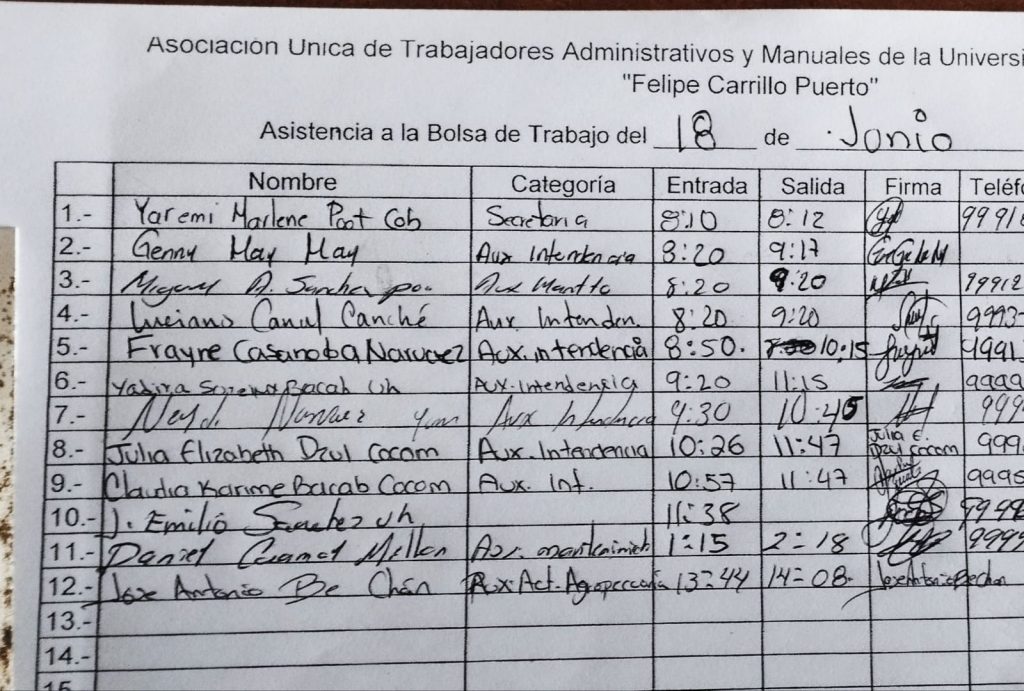 Asociación Única de Trabajadores Administrativos y Manuales de la Universi
"Felipe Carrillo Puerto"
Asistencia a la Bolsa de Trabajo del 18 de Junio
Nombre Categoría Entrada Salida Firma Teléfo
1.- Yaremi Marlene Poot Cob Secretaria 8:10 8:12 9991
2.- Genny May May Aux Intendencia 8:20 9:17
3.- Miguel A. Sanchez poo Aux Mantto 8:20 9:20 99912
4.- Luciano Canul Canché Aux. Intenden. 8:20 9:20 9993
5.- Frayre Casanoba Narvaez Aux. intendencia 8:50. 10:15 9991
6.- Yadira Bacab Uh Aux. Intendencia 9:20 11:15 9999
7.- Narvaez Aux Intendencia 9:30 10:45 999
8.- Julia Elizabeth Dzul Cocom Aux. Intendencia 10:26 11:47 Julia E. Dzul Cocom 999
9.- Claudia Karime Bacab Cocom Aux. Int. 10:57 11:47 9995
10.- J. Emilio Sanchez Uh 11:38 9999
11.- Daniel Caamal Aux. mantenimient 1:15 2:18 9999
12.- Jose Antonio Be Chán Aux. Act. Agropecuaria 13:44 14:08 Jose Antonio Be chan
13.-
14.-
15